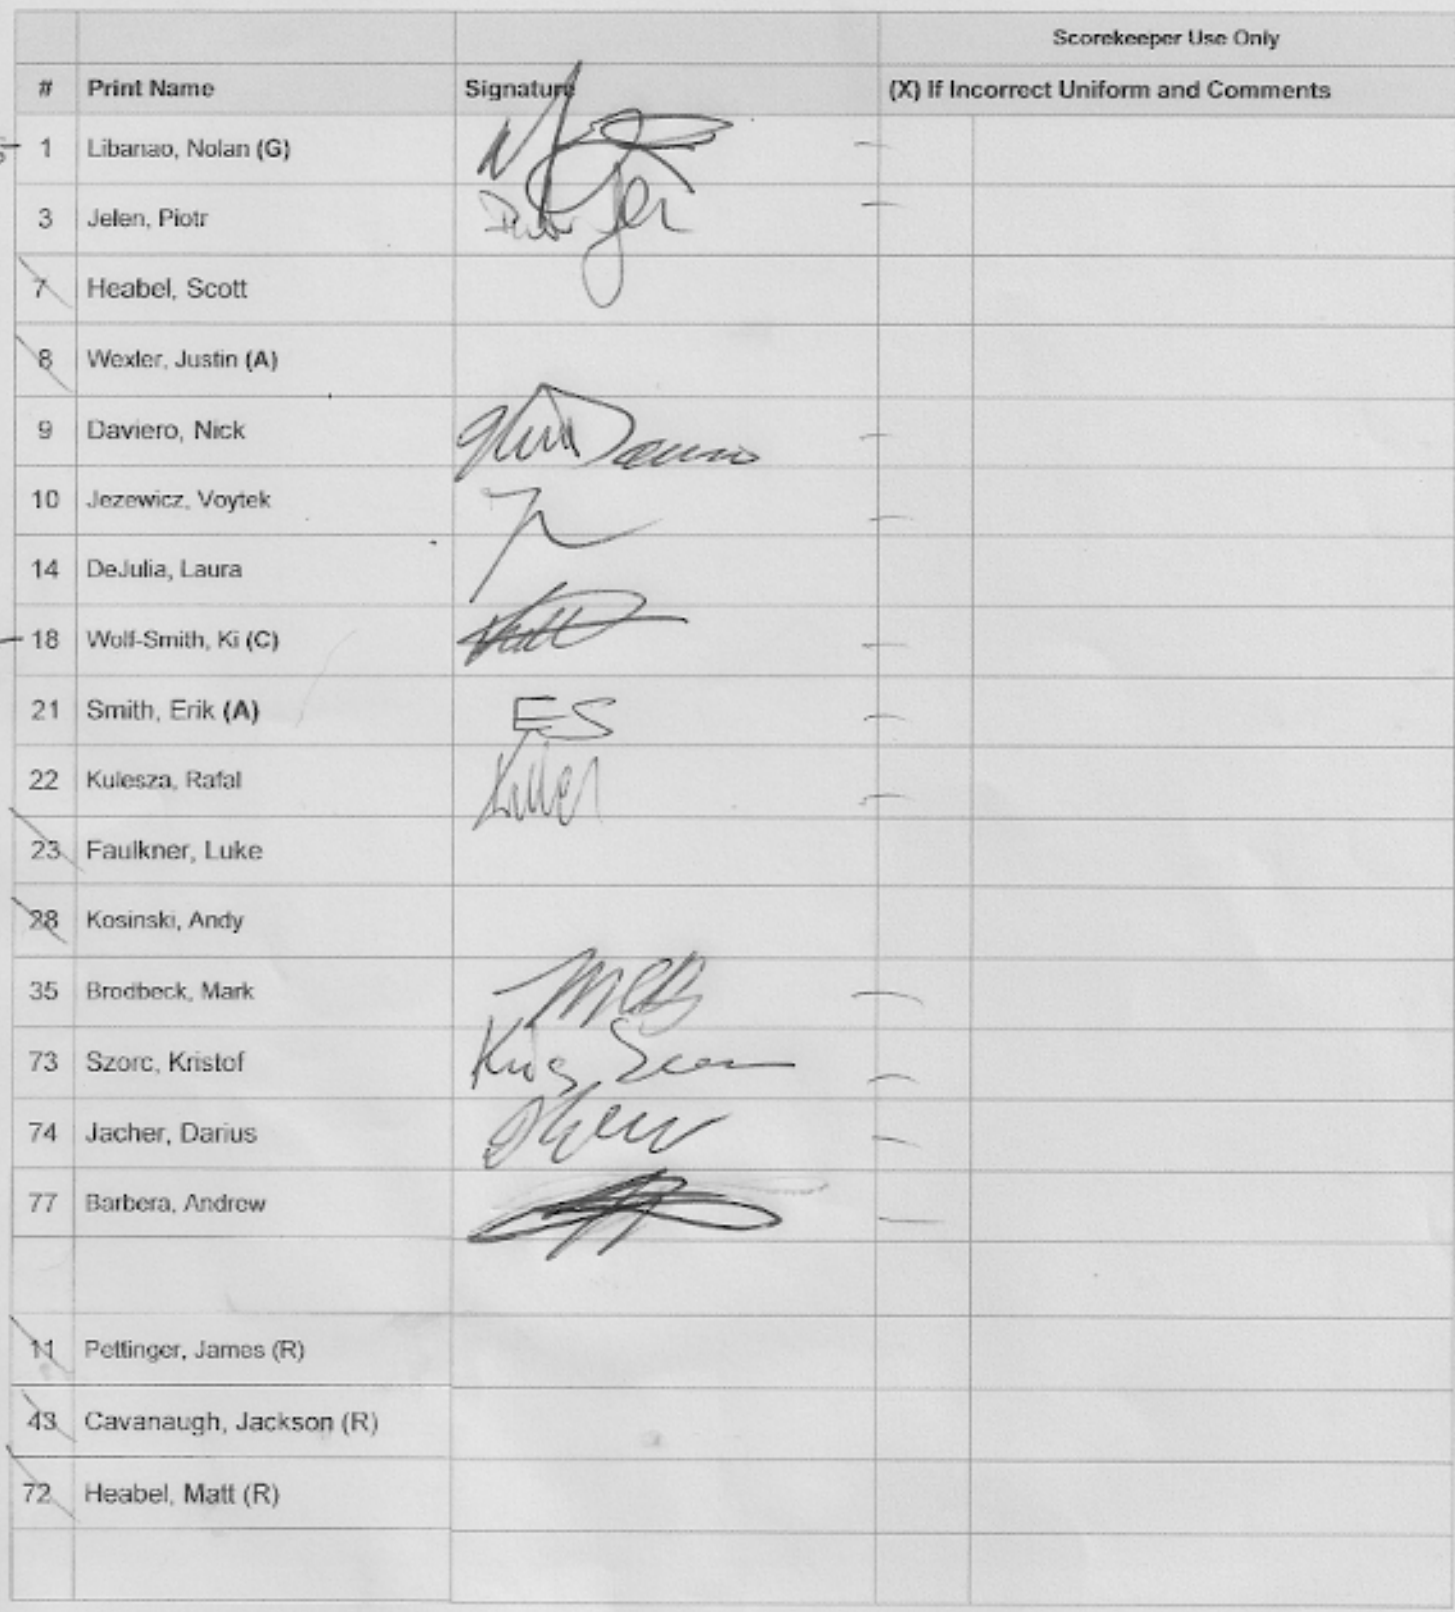 Scorekeeper Use Only
# Print Name Signature (X) If Incorrect Uniform and Comments
1 Libanao, Nolan (G)
3 Jelen, Piotr
7 Heabel, Scott
8 Wexler, Justin (A)
9 Daviero, Nick
10 Jezewicz, Voytek
14 DeJulia, Laura
18 Wolf-Smith, Ki (C)
21 Smith, Erik (A) ES
22 Kulesza, Rafal
23 Faulkner, Luke
28 Kosinski, Andy
35 Brodbeck, Mark
73 Szorc, Kristof
74 Jacher, Darius
77 Barbera, Andrew
11 Pettinger, James (R)
43 Cavanaugh, Jackson (R)
72 Heabel, Matt (R)